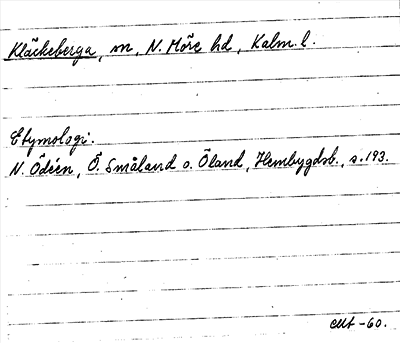 Kläckeberga, sn, N. Möre hd, Kalm. l.
Etymologi.
N. Ödéen, Ö. Småland o. Öland, Hembygdsb., s. 193.
-60.